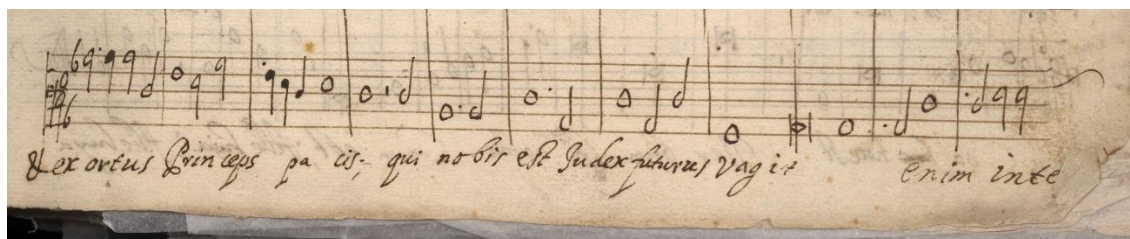 & exortus Princeps pacis, qui nobis est Judex futurus Vagit enim inte